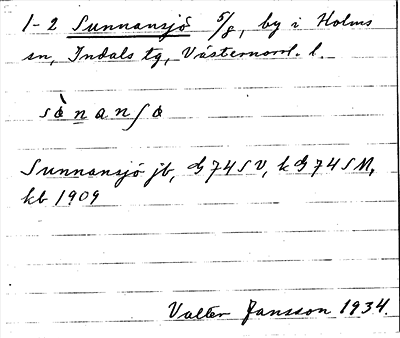 1-2 Sunnansjö 5/8, by i Holms
sn, Indals tg, Västernorrl. l.
sànanʃα
Sunnansjö jb, G74SV, k G74SM,
kb 1909
Valter Jansson 1934.